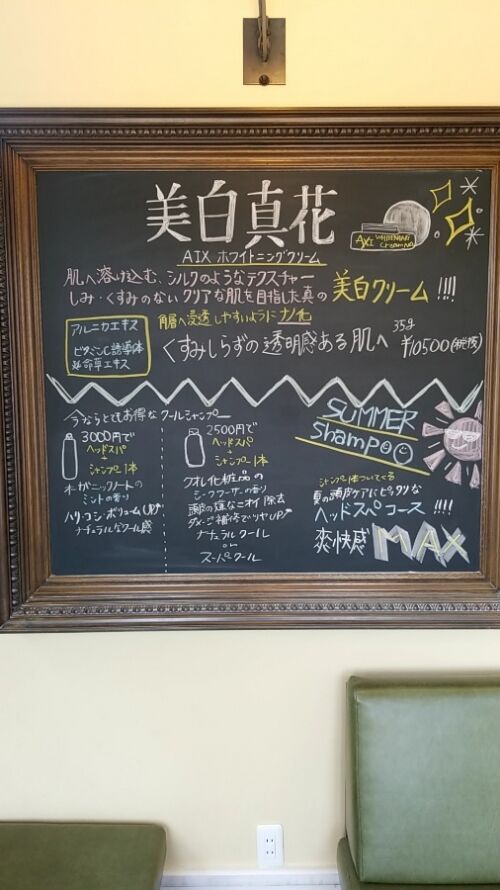 美白真花
AIX ホワイトニングクリーム
AXI WHITENING CREAM
肌へ溶け込む、シルクのようなテクスチャー
しみ・くすみのないクリアな肌を目指した真の 美白クリーム!!!
アルニカエキス
ビタミンC誘導体
延命草エキス
角層へ浸透しやすいようにナノ化
くすみしらずの透明感ある肌へ 35g ¥10500(税抜)
今ならとてもお得なクールシャンプー
3000円で
ヘッドスパ
+
シャンプー1本
オーガニックノートの
ミントの香り
ハリ・コシ・ボリュームUP
ナチュラルなクール感
2500円で
ヘッドスパ
+
シャンプー1本
クオレ化粧品の
シークワーサーの香り
頭部の嫌なニオイ除去
ダメージ補修でツヤUP
ナチュラルクール
or
スーパークール
SUMMER
Shampoo
シャンプー1本ついてくる
夏の頭皮ケアにピッタリな
ヘッドスパコース!!!!
爽快感MAX